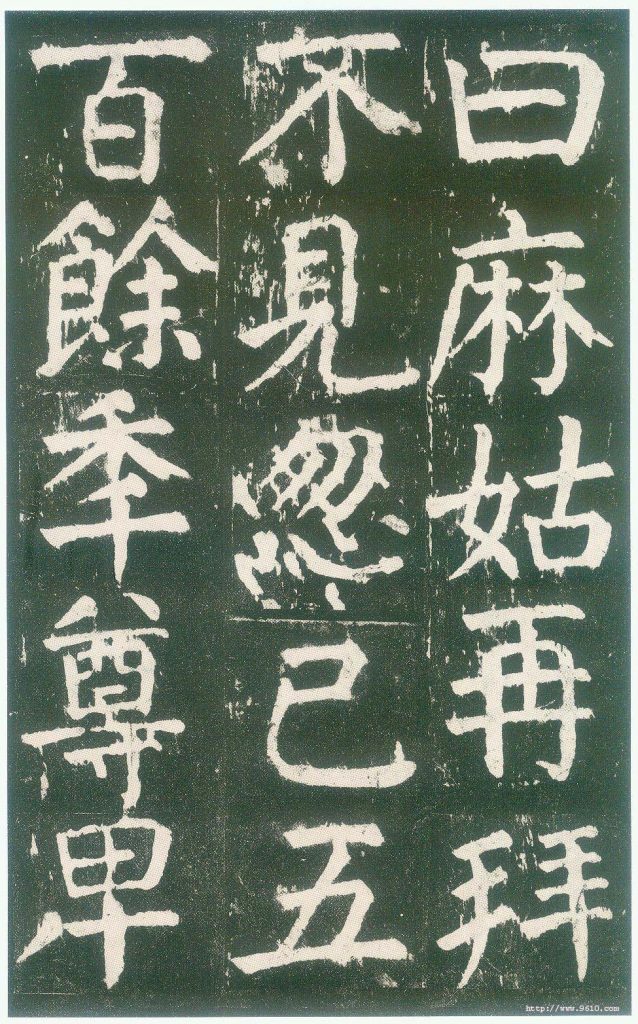 曰麻姑再拜
不見忽已五
百餘秊尊卑
http://www.9610.com